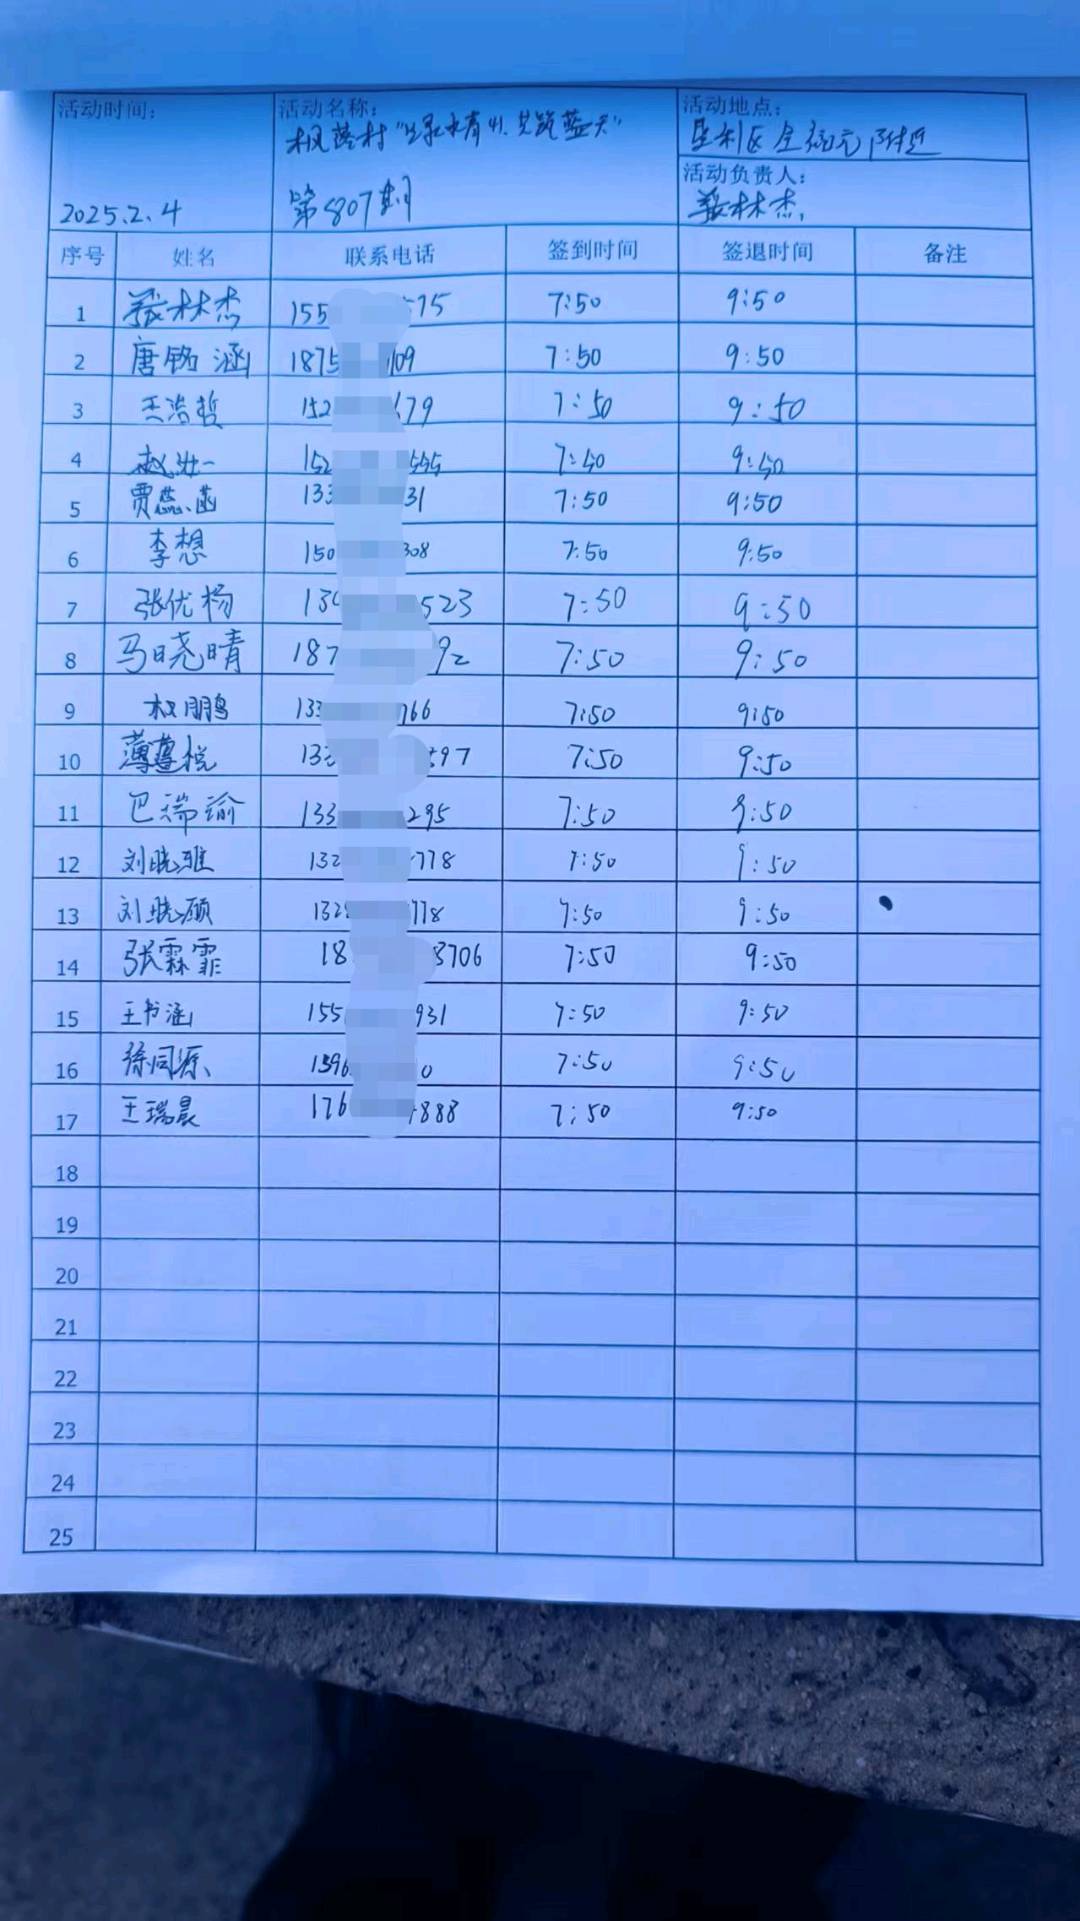 活动时间：
2025.2.4
活动名称：
枫落村"绿水青山,共筑蓝天"
第807期
活动地点：
垦利区 附近
活动负责人：
张林杰
序号 姓名 联系电话 签到时间 签退时间 备注
1 张林杰 155 575 7:50 9:50
2 唐铭涵 1875 109 7:50 9:50
3 王浩哲 152 679 7:50 9:50
4 赵壮一 152 555 7:50 9:50
5 贾蕊菡 133 31 7:50 9:50
6 李想 150 308 7:50 9:50
7 张优杨 134 523 7:50 9:50
8 马晓晴 187 92 7:50 9:50
9 权鹏 133 766 7:50 9:50
10 薄蓬悦 132 597 7:50 9:50
11 巴瑞瑜 133 295 7:50 9:50
12 刘晓雅 132 778 7:50 9:50
13 刘晓硕 132 778 7:50 9:50
14 张霖霏 18 8706 7:50 9:50
15 王书涵 155 931 7:50 9:50
16 徐同源 1396 0 7:50 9:50
17 王瑞晨 176 888 7:50 9:50
18
19
20
21
22
23
24
25